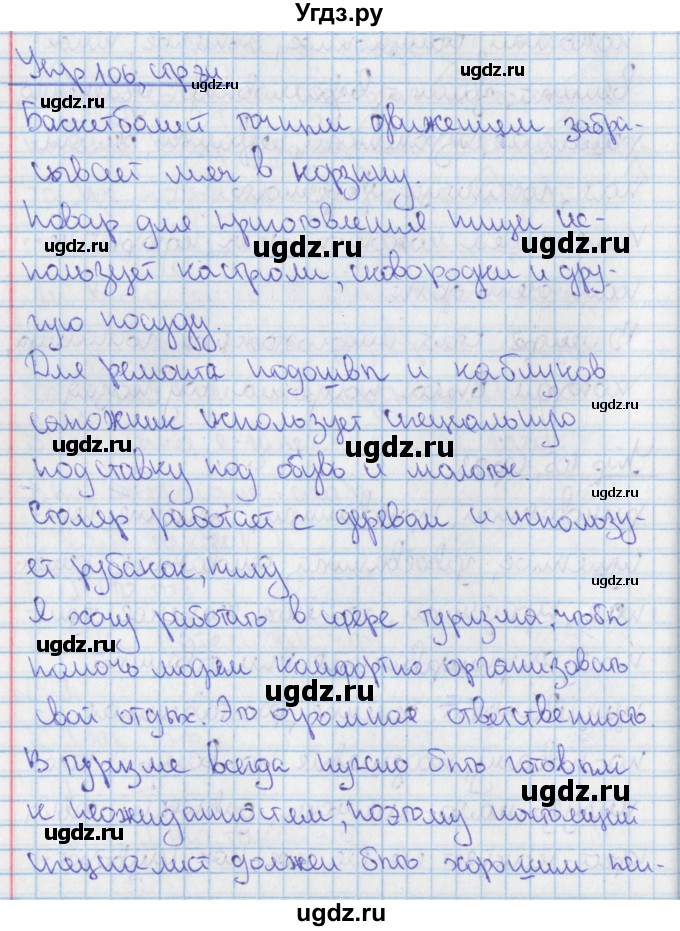 Угдз.ру
Упр 106, стр 31
ugdz.ru
ugdz.ru
ugdz.ru
Баскетболист точным движением забра-
сывает мяч в корзину.
Повар для приготовления пищи ис-
ugdz.ru ugdz.ru ugdz.ru
пользует кастрюли, сковородки и дру-
гую посуду.
Для ремонта подошвы и каблуков
ugdz.ru
сапожник использует специальную
ugdz.ru ugdz.ru
подставку под обувь и молоток.
ugdz.ru
Столяр работает с деревом и использу-
ет рубанок, пилу
ugdz.ru
Я хочу работать в сфере туризма, чтобы
ugdz.ru
помочь людям комфортно организовать
ugdz.ru
свой отдых. Это огромная ответственность
В туризме всегда нужно быть готовым
ugdz.ru
к неожиданностям, поэтому настоящий
ugdz.ru ugdz.ru
специалист должен быть хорошим пси-
ugdz.ru
ugdz.ru